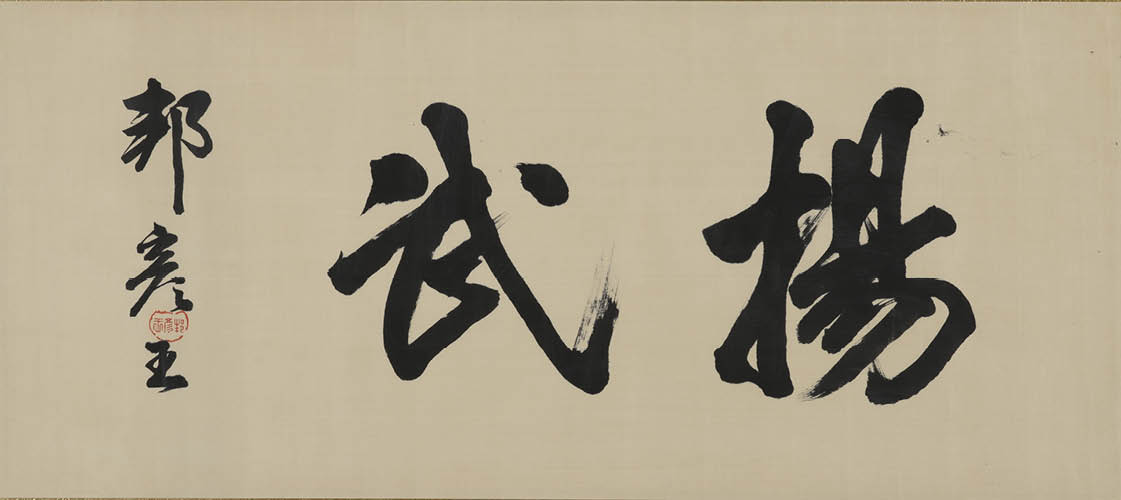 揚武
邦彦王